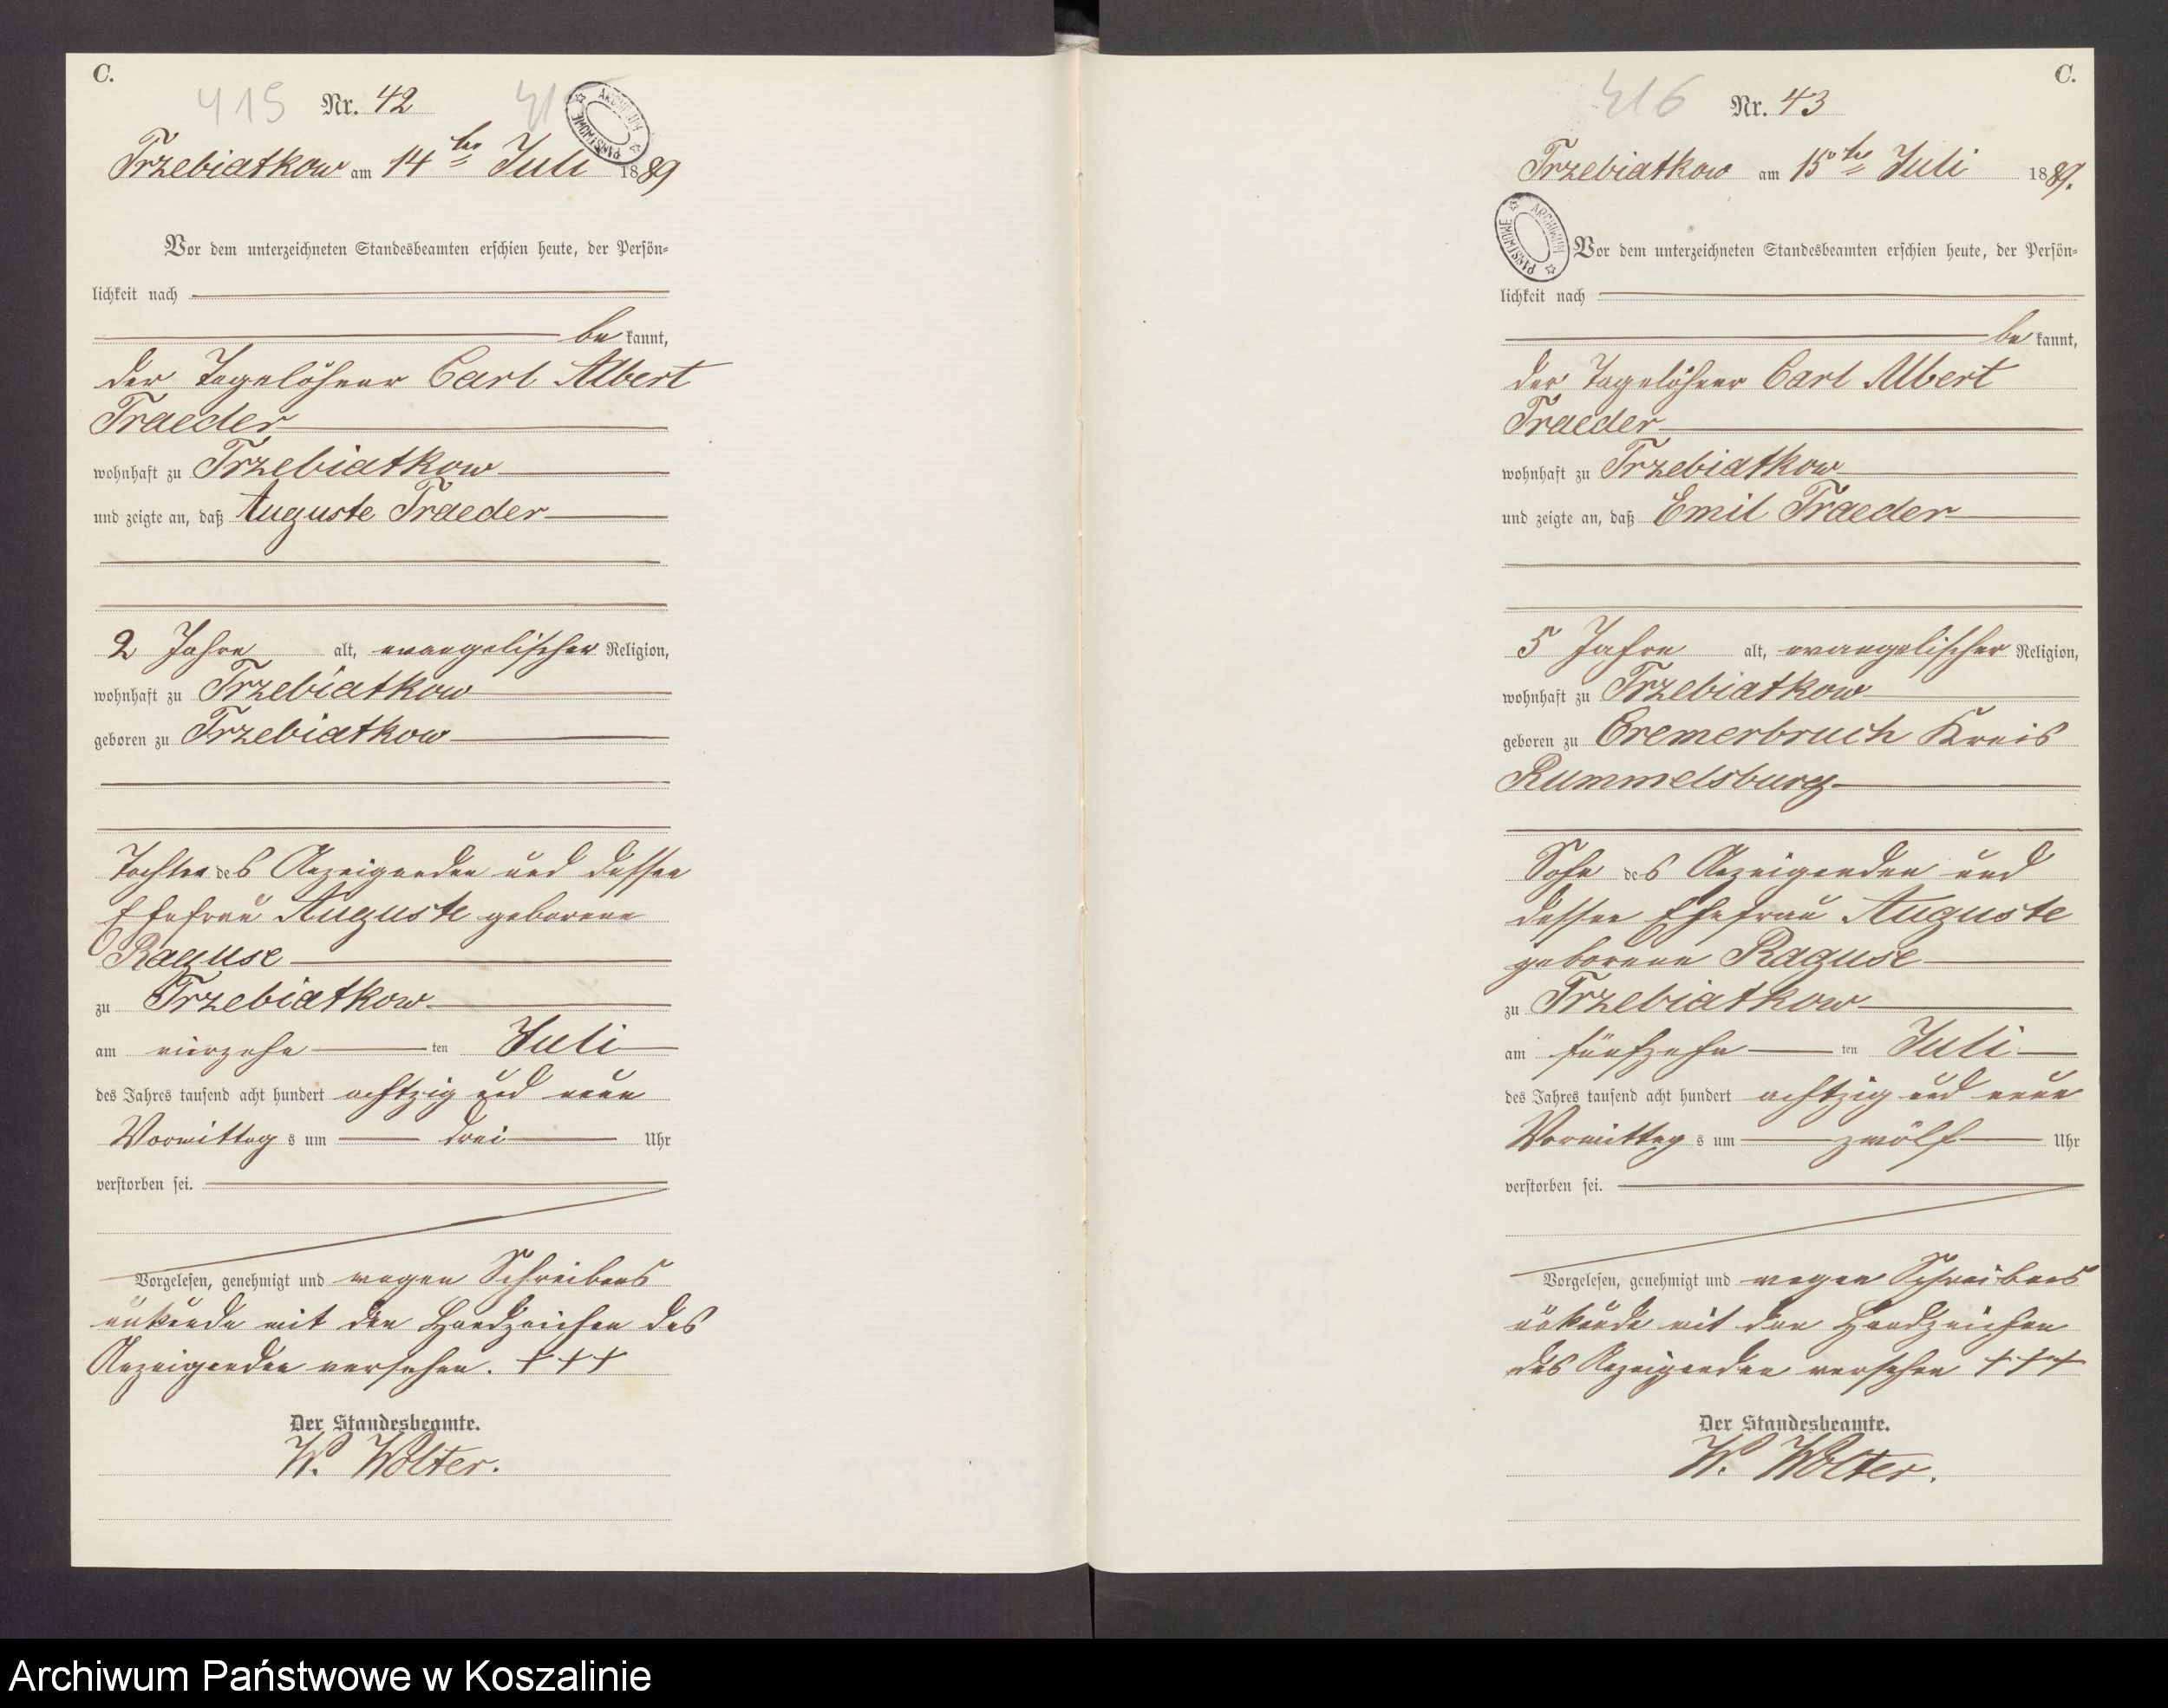 C.
415 Nr. 42
ARCHIWUM PAŃSTWOWE
Trzebiatkow am 14ten Juli 1889
Vor dem unterzeichneten Standesbeamten erschien heute, der Persön-
lichkeit nach
bekannt,
der Tagelöhner Carl Albert
Traeder
wohnhaft zu Trzebiatkow
und zeigte an, daß Auguste Traeder
2 Jahre alt, evangelischer Religion,
wohnhaft zu Trzebiatkow
geboren zu Trzebiatkow
Tochter des Anzeigenden und dessen
Ehefrau Auguste geborene
Raguse
zu Trzebiatkow
am vierzehnten Juli
des Jahres tausend acht hundert achtzig und neun
Vormittags um drei Uhr
verstorben sei.
Vorgelesen, genehmigt und wegen Schreibens
unkunde mit den Handzeichen des
Anzeigenden versehen. + + +
Der Standesbeamte.
W. Wolter.
C.
416 Nr. 43
Trzebiatkow am 15ten Juli 1889.
ARCHIWUM PAŃSTWOWE
Vor dem unterzeichneten Standesbeamten erschien heute, der Persön-
lichkeit nach
bekannt,
der Tagelöhner Carl Albert
Traeder
wohnhaft zu Trzebiatkow
und zeigte an, daß Emil Traeder
5 Jahre alt, evangelischer Religion,
wohnhaft zu Trzebiatkow
geboren zu Cremerbruch Kreis
Rummelsburg
Sohn des Anzeigenden und
dessen Ehefrau Auguste
geborene Raguse
zu Trzebiatkow
am fünfzehnten Juli
des Jahres tausend acht hundert achtzig und neun
Vormittags um zwölf Uhr
verstorben sei.
Vorgelesen, genehmigt und wegen Schreibens
unkunde mit den Handzeichen
des Anzeigenden versehen + + +
Der Standesbeamte.
W. Wolter.
Archiwum Państwowe w Koszalinie